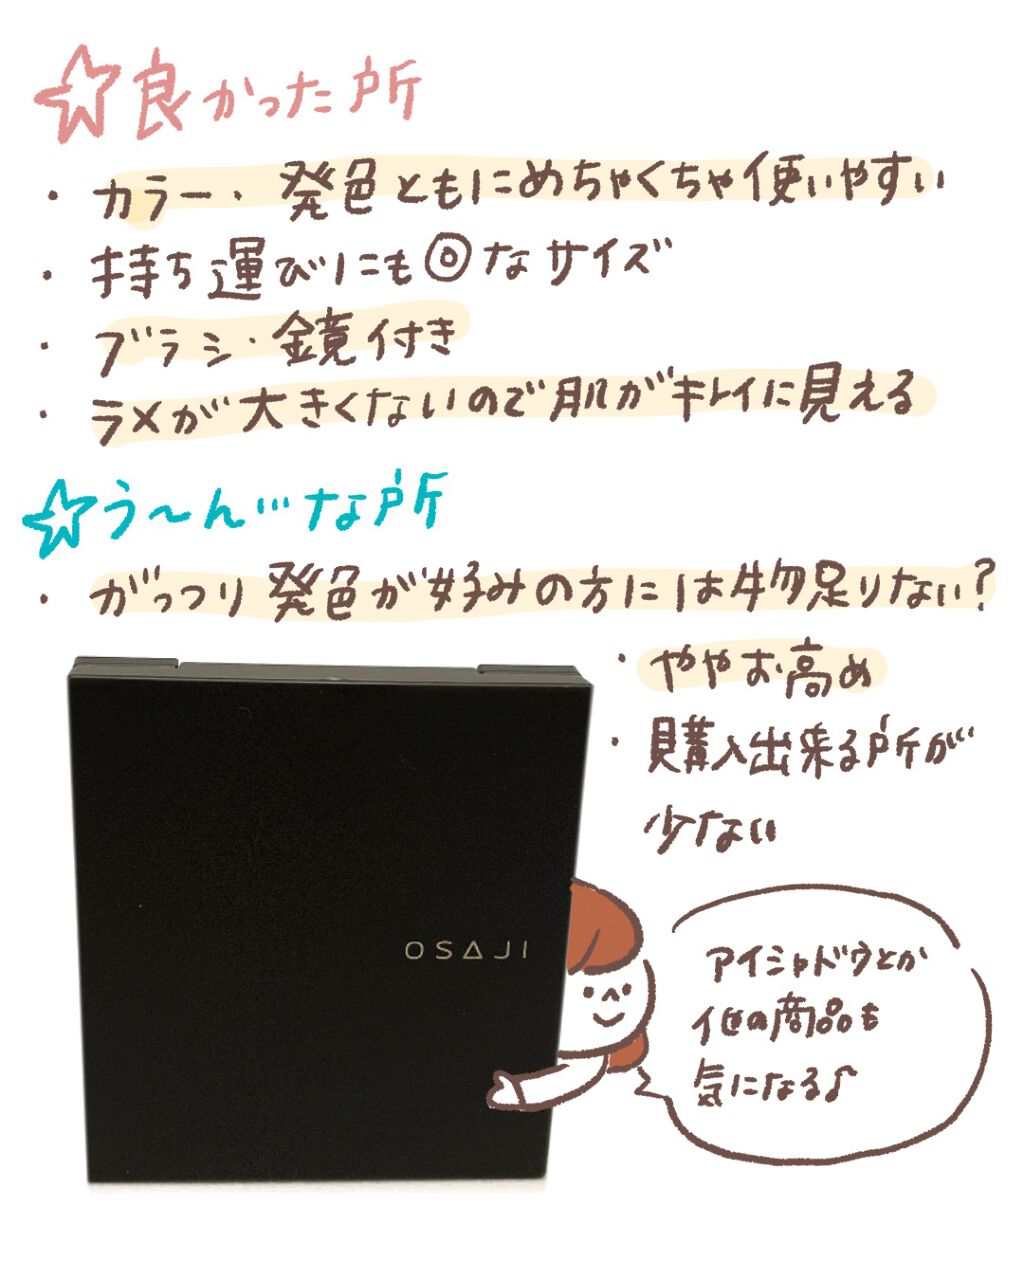 ☆良かった所
・カラー・発色ともにめちゃくちゃ使いやすい
・持ち運びにも◎なサイズ
・ブラシ・鏡付き
・ラメが大きくないので肌がキレイに見える
☆う〜ん…な所
・がっつり発色が好みの方には物足りない?
・ややお高め
・購入出来る所が
少ない
OSAJI
アイシャドウとか
他の商品も
気になる♪